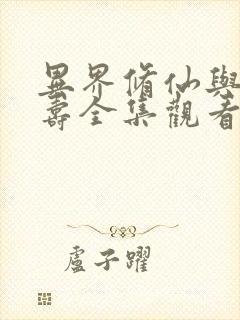 異界脩仙與
壽全集觀看
盧子躍